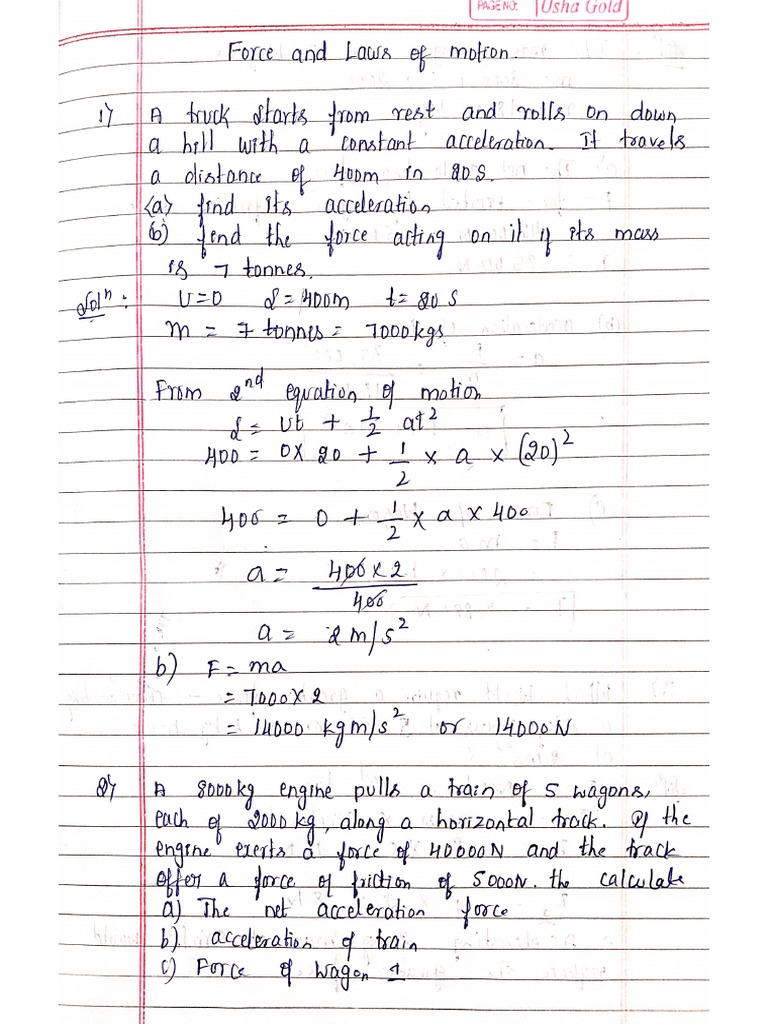 PAGE NO:
Usha Gold
Force and Laws of motion.
1) A truck starts from rest and rolls on down
a hill with a constant acceleration. It travels
a distance of 400m in 20s.
(a) find its acceleration
(b) find the force acting on it if its mass
is 7 tonnes.
Solⁿ: U=0 S=400m t=20s
m = 7 tonnes = 7000kgs.
From 2nd equation of motion
S = Ut + 1/2 at²
400 = 0x20 + 1/2 x a x (20)²
400 = 0 + 1/2 x a x 400
a = 400x2/400
a = 2m/s²
b) F = ma
= 7000x2
= 14000 kgm/s² or 14000N
2) A 8000kg engine pulls a train of 5 wagons,
each of 2000kg, along a horizontal track. If the
engine exerts a force of 40000N and the track
offer a force of friction of 5000N. the calculate
a) The net acceleration force
b) acceleration of train
c) Force of wagon 1